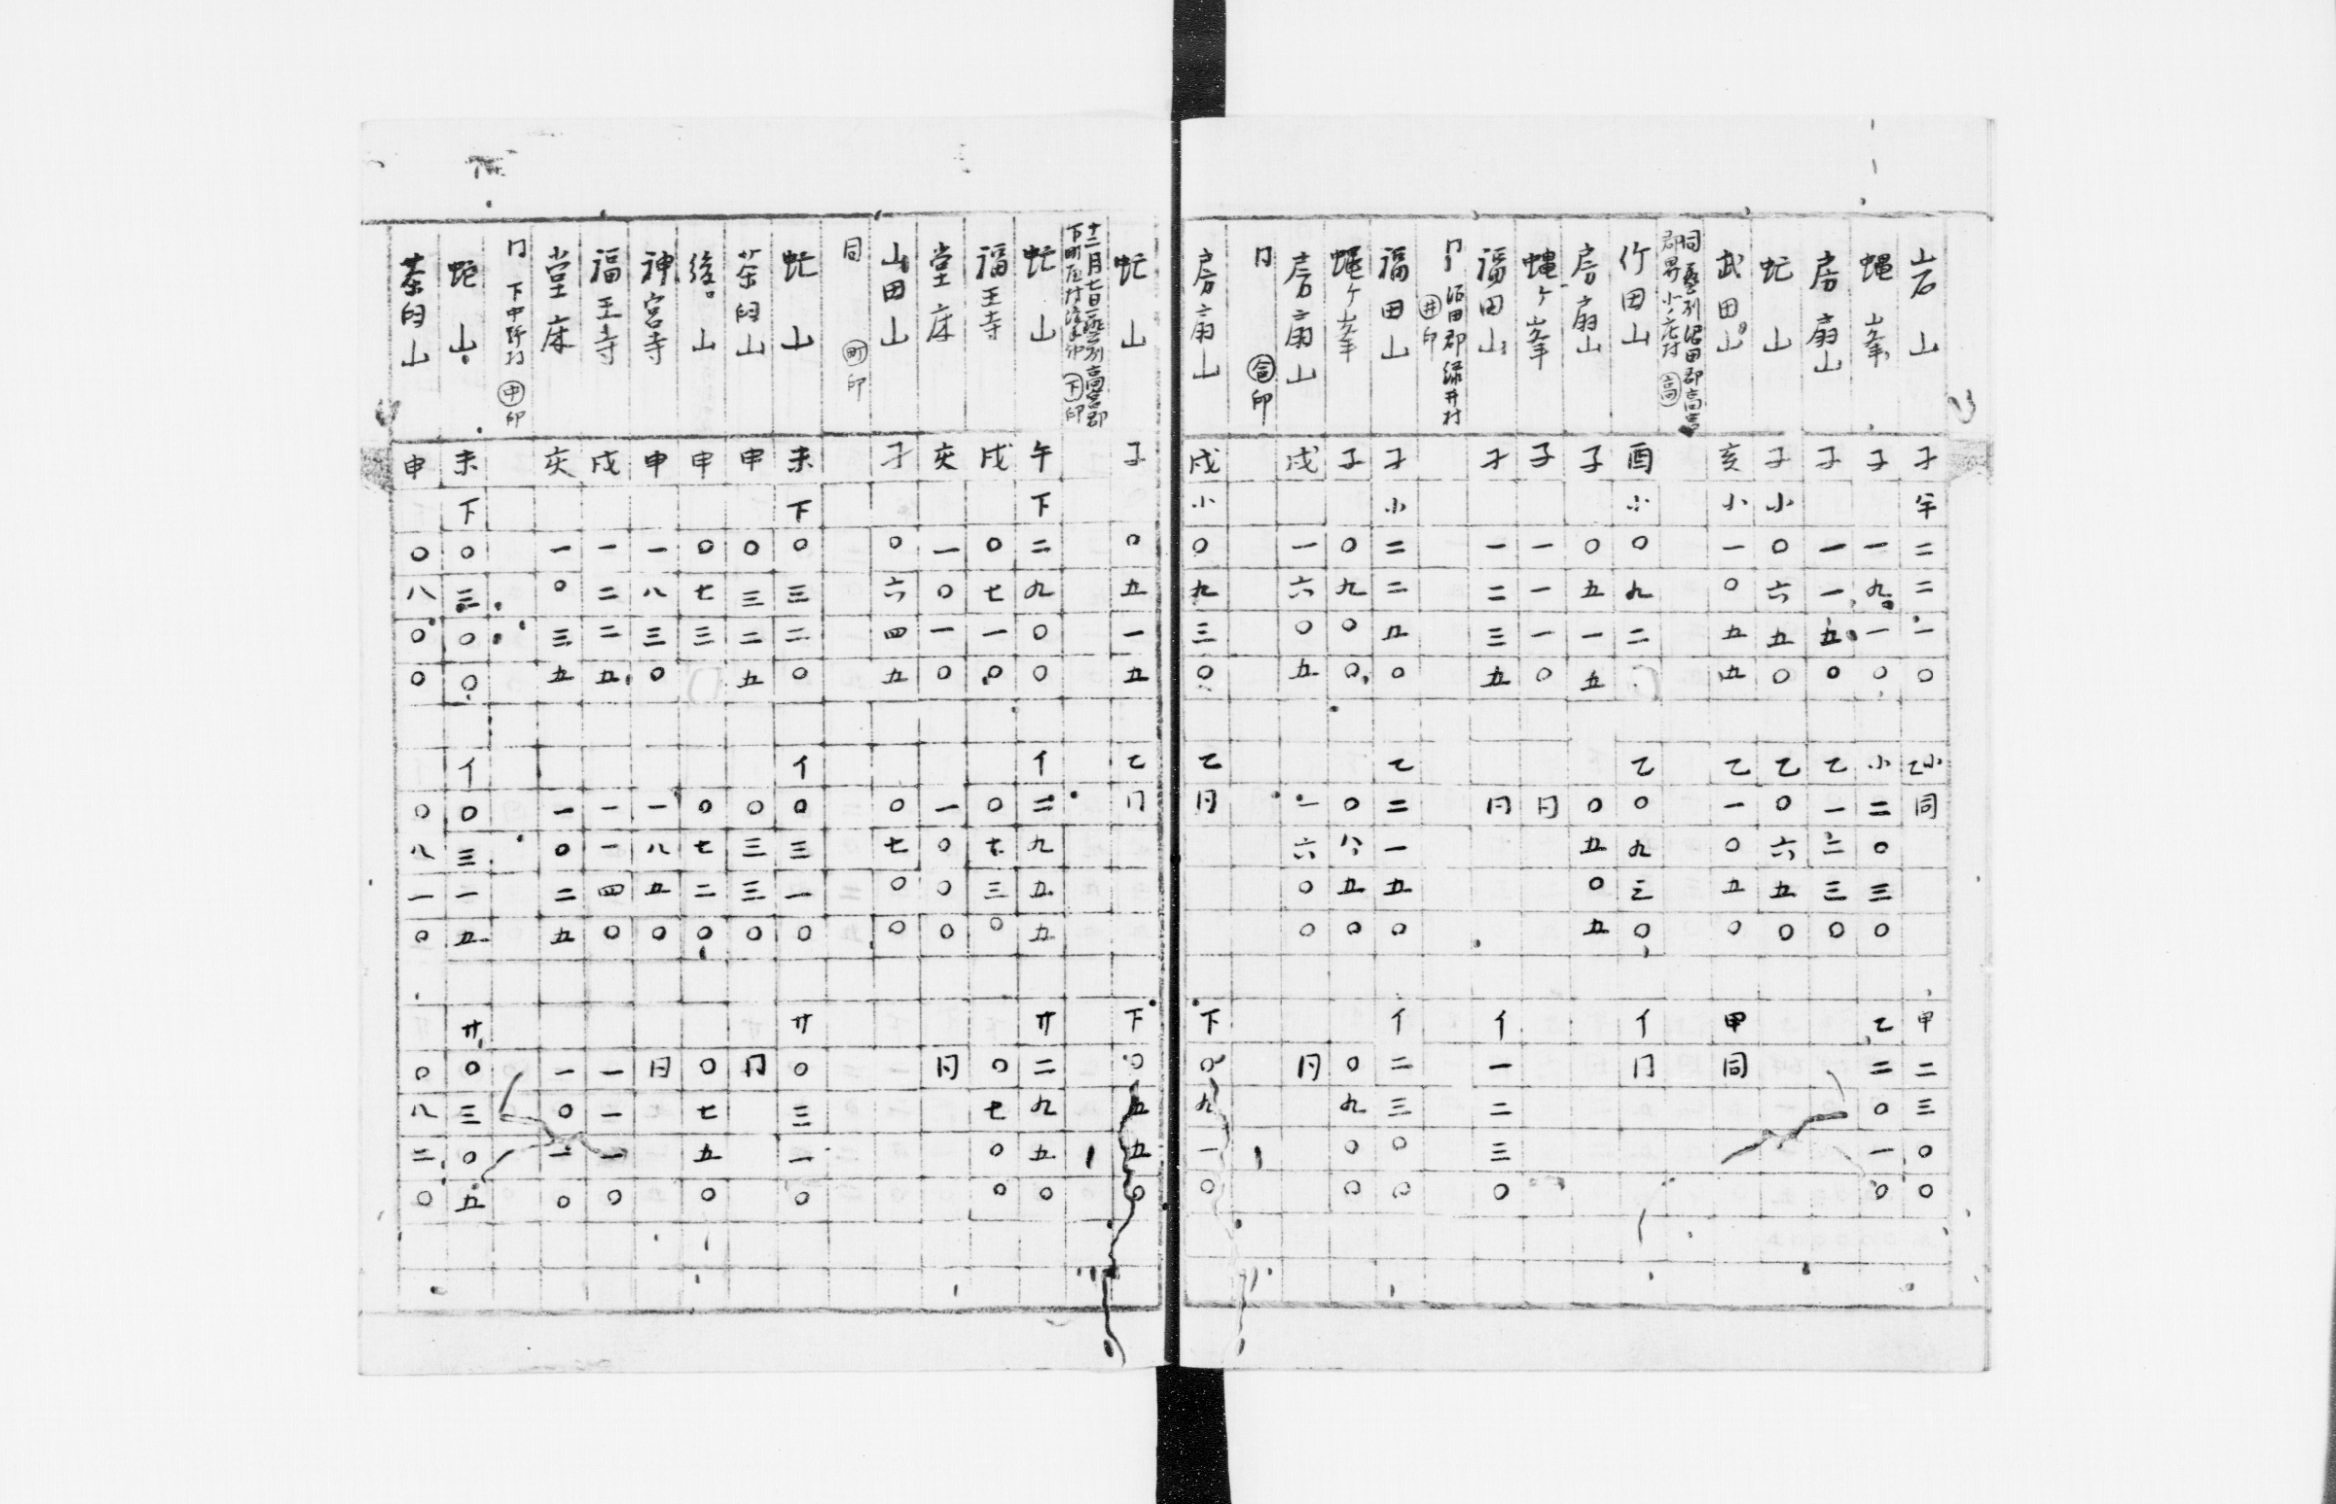 岩山 子午二二一〇 乙小同 甲二三〇〇
蝿峯 子一九一〇 小二〇三〇 乙二〇一〇
房扇山 子一一五〇 乙一二三〇
虻山 子小〇六五〇 乙〇六五〇
武田山 亥小一〇五五 乙一〇五〇 甲同
同藝列沼田郡高宮郡界小 村 高
竹田山 酉小〇九二〇 乙〇九三〇 イ同
房扇山 子〇五一五 〇五〇五
蝿ケ峯 子一一一〇 同
福田山 子一二三五 同 イ一二三〇
同 沼田郡緑井村 井印
福田山 子小二二五〇 乙二一五〇 イ二三〇〇
蝿ケ峯 子〇九〇〇 〇八五〇 〇九〇〇
房扇山 戌一六〇五 一六〇〇 同
同 合印
房扇山 戌小〇九三〇 乙同 下〇九一〇
虻山 子〇五一五 乙同 下〇五五〇
十二月七日藝列高宮郡下町屋村 下印
虻山 午下二九〇〇 イ二九五五 サ二九五〇
福王寺 戌〇七一〇 〇七三〇 〇七〇〇
堂床 亥一〇一〇 一〇〇〇 同
山田山 子〇六四五 〇七〇〇
同 町印
虻山 未下〇三二〇 イ〇三一〇 サ〇三一〇
茶臼山 申〇三二五 〇三三〇 同
後山 申〇七三 〇七二〇 〇七五〇
神宮寺 申一八三〇 一八五〇 同
福王寺 戌一二二五 一一四〇 一一一〇
堂床 亥一〇三五 一〇二五 一〇一〇
同 下中野村 中印
蛇山 未下〇三〇〇 イ〇三一五 サ〇三〇五
茶臼山 申〇八〇〇 〇八一〇 〇八二〇